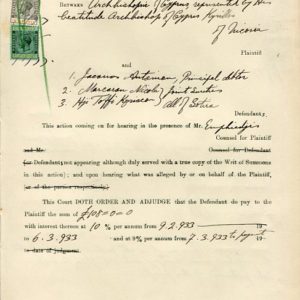 BETWEEN Archbishopric of Cyprus represented by His
Beatitude Archbishop of Cyprus Kyrillos
of Nicosia
Plaintiff
and
1. Principal debtor
2. Joint Sureties
3. Hji All of Sotira
Defendants.
This action coming on for hearing in the presence of Mr. Emphiedgis
Counsel for Plaintiff
and Mr. Counsel for Defendant
(or Defendants not appearing although duly served with a true copy of the Writ of Summons
in this action); and upon hearing what was alleged by or on behalf of the Plaintiff
(or of the parties respectively).
This Court DOTH ORDER AND ADJUDGE that the Defendant do pay to
the Plaintiff the sum of £108=0=0
with interest thereon at 10 % per annum from 9.2.933 19
to 6.3.933 and at 9% per annum from 7.3.933 to payment 19
to date of judgment.